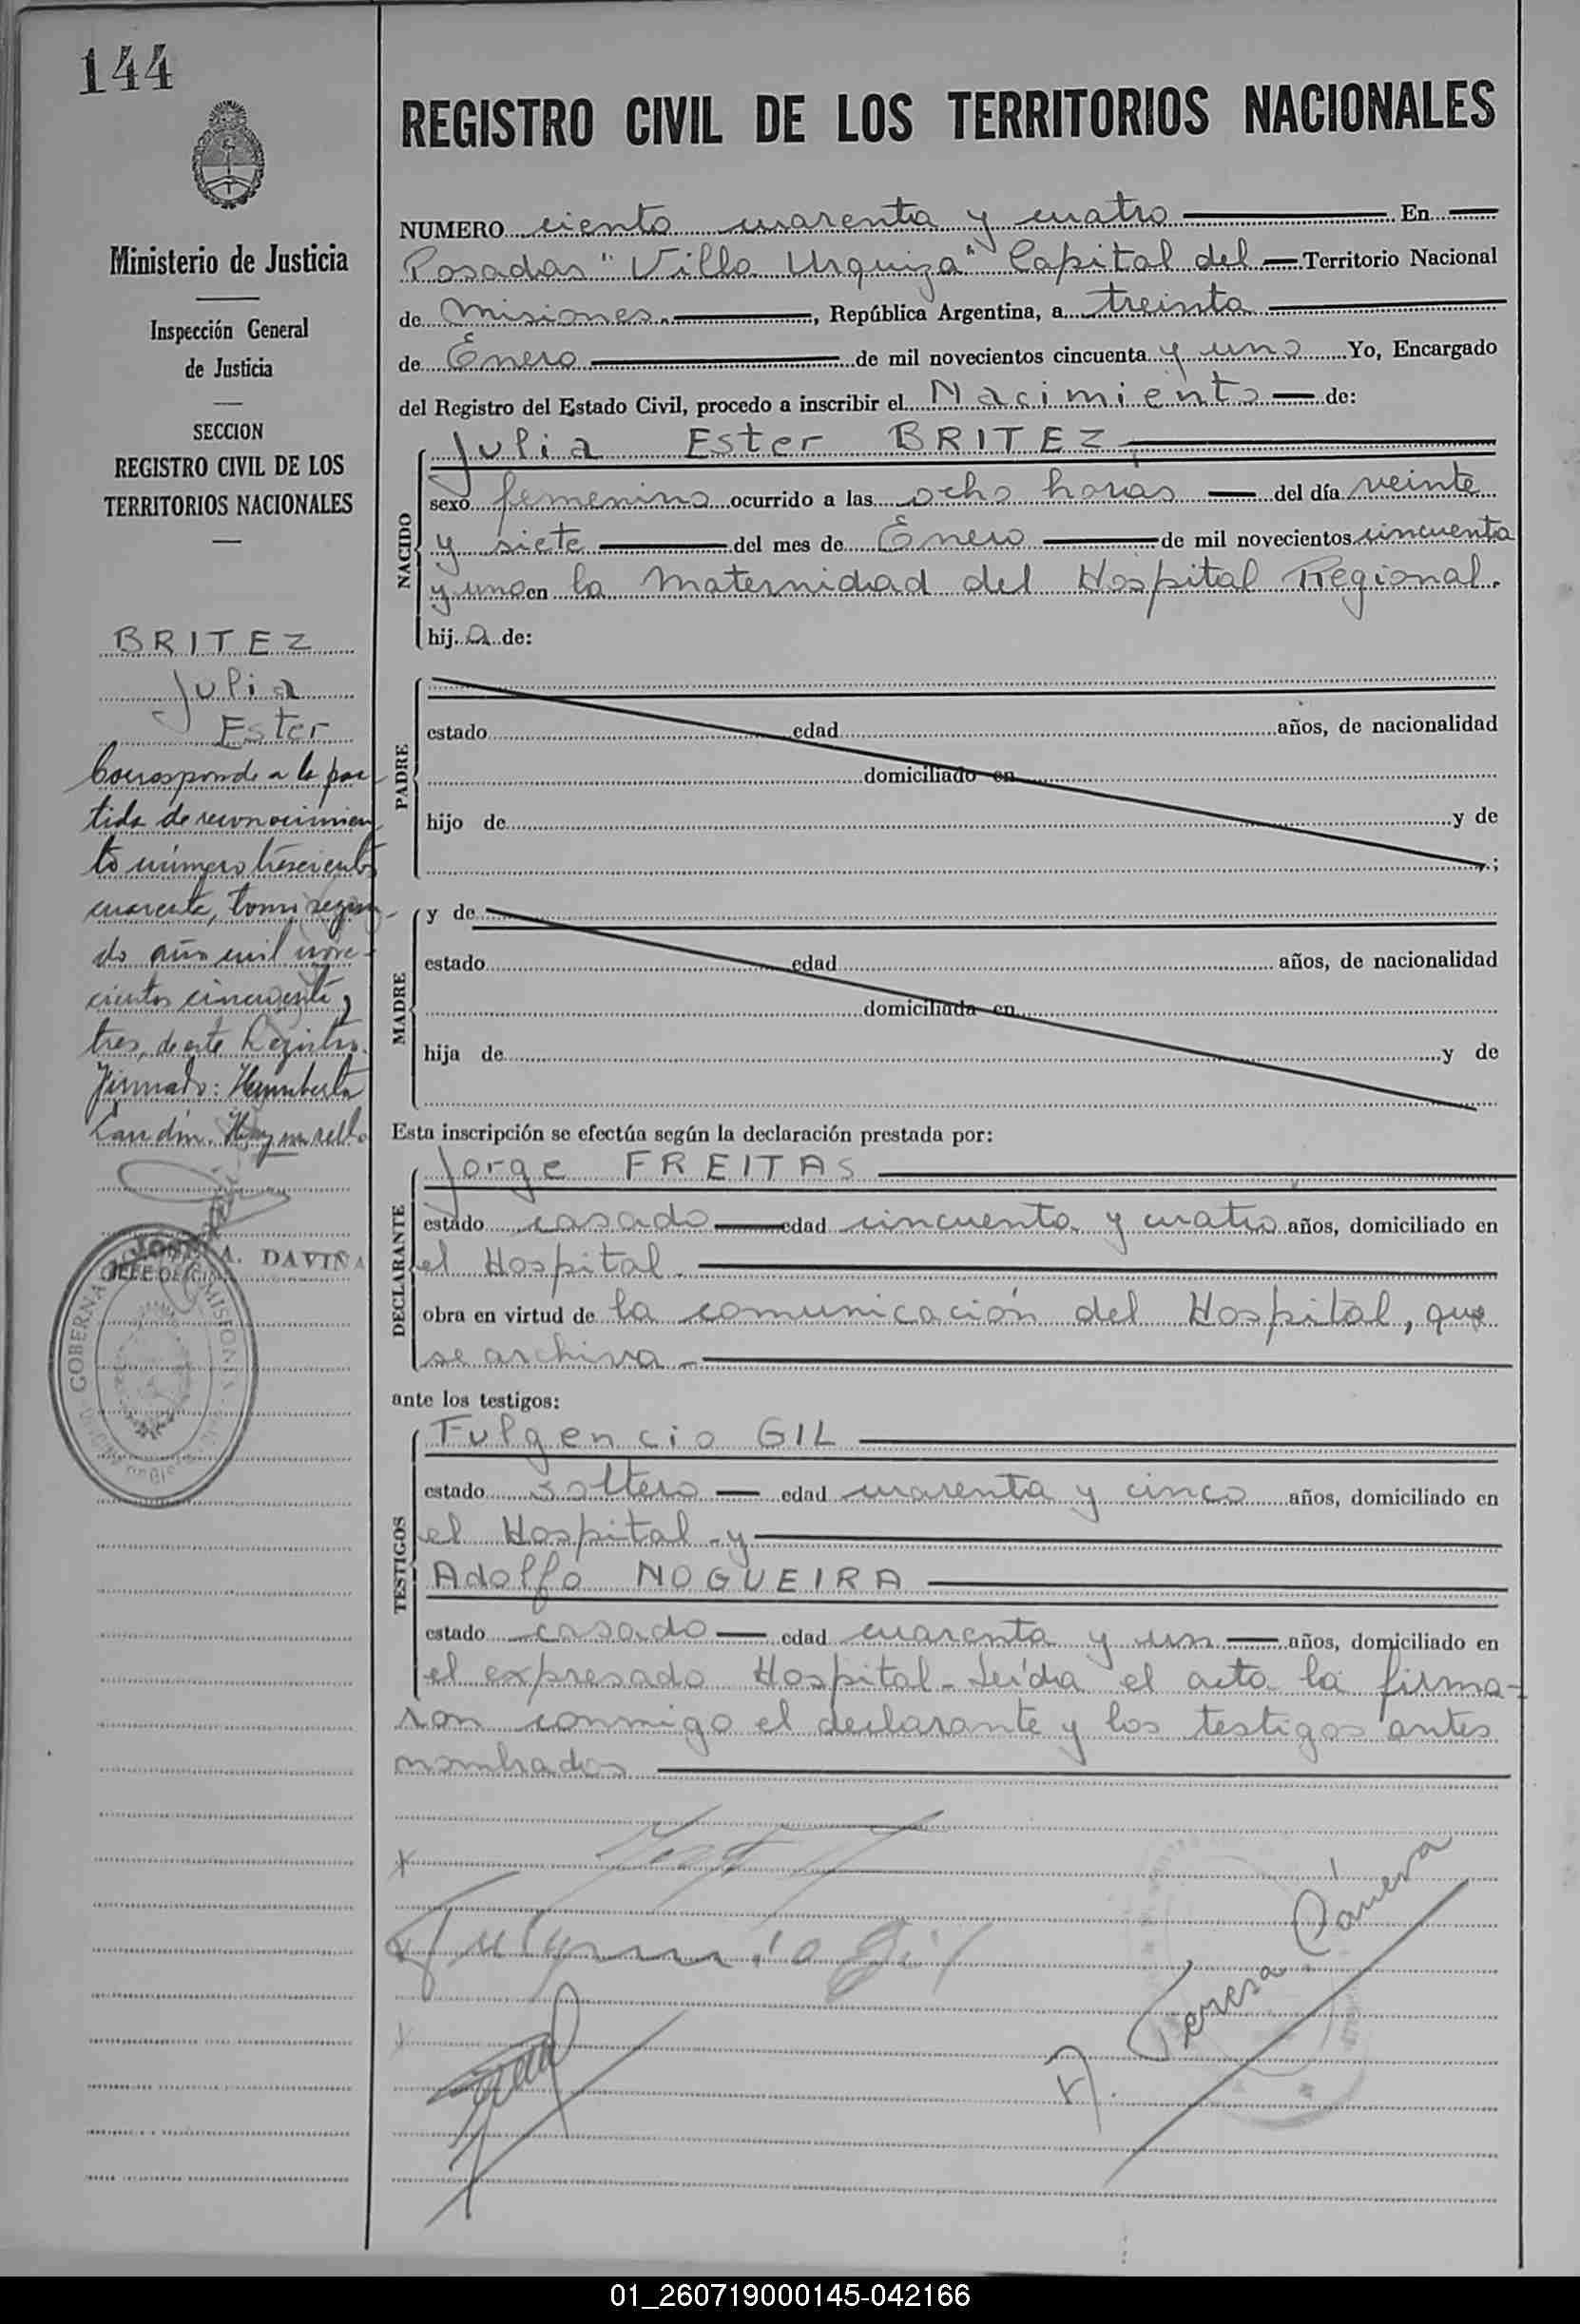 144
Ministerio de Justicia
Inspección General
de Justicia
SECCION
REGISTRO CIVIL DE LOS
TERRITORIOS NACIONALES
BRITEZ
Julia
Ester
Corresponde a la par
tida de reconocimien
to número trescientos
cuarenta, tomo segun-
do año mil nove-
cientos cincuenta y
tres, de este Registro.
Firmado: Humberto
Landín. Hay un sello
A. DAVIÑA
JEFE
GOBERNA MISIONES
REGISTRO CIVIL DE LOS TERRITORIOS NACIONALES
NUMERO ciento cuarenta y cuatro En
Posadas "Villa Urquiza" Capital del Territorio Nacional
de Misiones, República Argentina, a treinta
de Enero de mil novecientos cincuenta y uno Yo, Encargado
del Registro del Estado Civil, procedo a inscribir el Nacimiento de:
Julia Ester BRITEZ
NACIDO
sexo femenino ocurrido a las ocho horas del día veinte
y siete del mes de Enero de mil novecientos cincuenta
y uno en la Maternidad del Hospital Regional.
hij a de:
PADRE
estado edad años, de nacionalidad
domiciliado en
hijo de y de
;
MADRE
y de
estado edad años, de nacionalidad
domiciliada en
hija de y de
Esta inscripción se efectúa según la declaración prestada por:
DECLARANTE
Jorge FREITAS
estado casado edad cincuenta y cuatro años, domiciliado en
el Hospital
obra en virtud de la comunicación del Hospital, que
se archiva
ante los testigos:
TESTIGOS
Fulgencio GIL
estado soltero edad cuarenta y cinco años, domiciliado en
el Hospital y
Adolfo NOGUEIRA
estado casado edad cuarenta y un años, domiciliado en
el expresado Hospital - Leída el acta la firma-
ron conmigo el declarante y los testigos antes
nombrados
Fulgencio Gil
Teresa Cánera
01_260719000145-042166